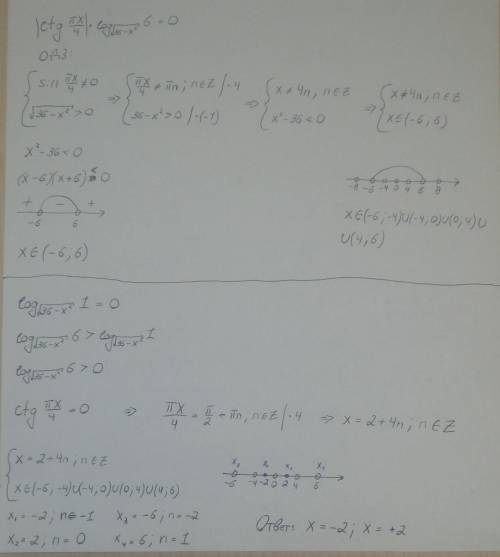 |ctg πx/4| · log_√(36-x²) 6 = 0
ОДЗ:
{ sin πx/4 ≠ 0 ⇒ { πx/4 ≠ πn; n∈Z | ·4 ⇒ { x ≠ 4n, n∈Z ⇒ { x ≠ 4n, n∈Z
√(36-x²) > 0 36-x² > 0 | ·(-1) x²-36 < 0 x∈(-6; 6)
x²-36 < 0
(x-6)(x+6) < 0
+ - +
-6 6
x∈(-6; 6)
-8 -6 -4 0 4 6 8
x∈(-6,-4)∪(-4,0)∪(0;4)∪
∪(4;6)
log_√(36-x²) 1 = 0
log_√(36-x²) 6 > log_√(36-x²) 1
log_√(36-x²) 6 > 0
ctg πx/4 = 0 ⇒ πx/4 = π/2 + πn, n∈Z | ·4 ⇒ x = 2+4n; n∈Z
{ x = 2+4n; n∈Z
x∈(-6,-4)∪(-4,0)∪(0;4)∪(4;6)
x₃ x₁ x₂ x₄
-6 -4 -2 0 2 4 6
x₁ = -2; n = -1 x₃ = -6; n = -2
x₂ = 2; n = 0 x₄ = 6; n = 1
Ответ: x = -2; x = +2